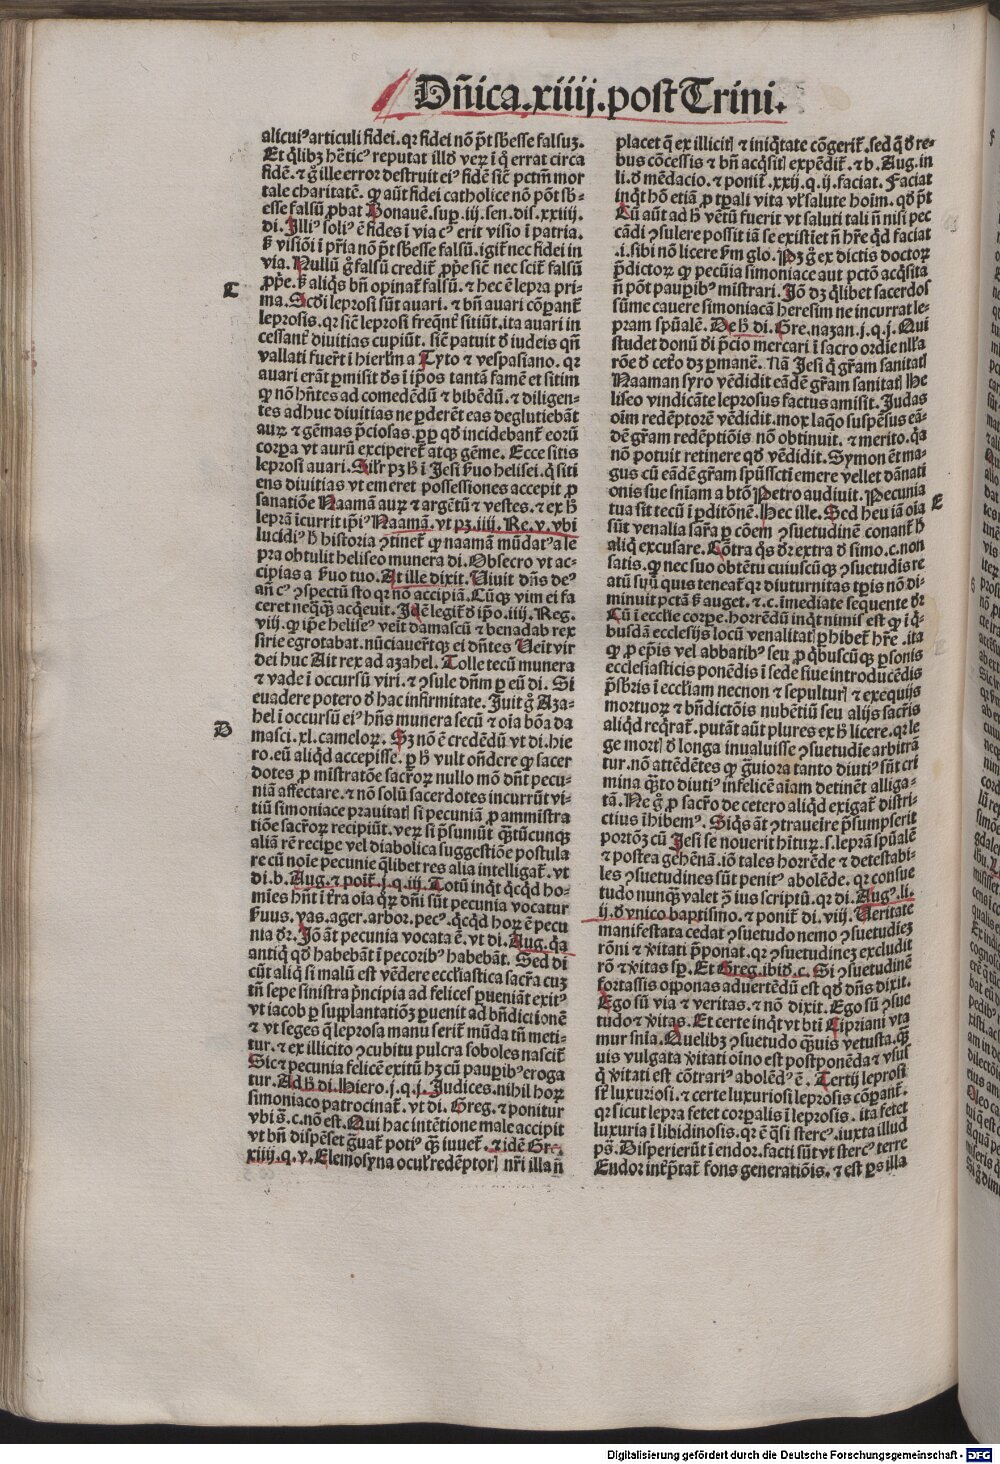 Dñica.xiiij.post Trini.
alicuiꝰ articuli fidei. qr fidei nõ põt sbesse falsuz.
Et qlibz hẽticꝰ reputat illð verꝫ ĩ q̃ errat circa
fidẽ. ⁊ g̊ ille error destruit eiꝰ fidẽ sic̃ pctm̃ mor
tale charitatẽ. ꝙ aũt fidei catholice nõ põt sb-
esse falsũ ꝓbat Bonauẽ. sup. iij. sen. dis. xxiiij.
di. Illiꝰ soliꝰ ẽ fides ĩ via cꝰ erit visio ĩ patria.
ß visiõi ĩ pr̃ia nõ põt sbesse falsũ. igit̃ nec fidei in
via. Nullũ g̊ falsũ credit̃ ꝓp̃e sic̃ nec scit̃ falsũ
ꝓp̃e. ß aliqs bñ opinat̃ falsũ. ⁊ hec ẽ lepra pri-
C
ma. Scði leprosi sũt auari. ⁊ bñ auari cõparant̃
leprosis. qr sic̃ leprosi freq̃nt̃ sitiũt. ita auari in
cessant̃ diuitias cupiũt. sic̃ patuit ð iudeis qñ
vallati fuer̃t ĩ hierlm̃ a Tyto ⁊ vespasiano. qr
auari erãt ꝑmisit ðs ĩ ip̃os tantã famẽ et sitim
ꝙ nõ hñtes ad comedẽdũ ⁊ bibẽdũ. ⁊ diligen-
tes adhuc diuitias ne ꝑderẽt eas deglutiebãt
aurꝫ ⁊ gẽmas p̃ciosas. ꝓp qð incidebant̃ eorũ
corpa vt aurũ exciperet̃ atqꝫ gẽme. Ecce sitis
leprosi auari. Silr̃ pꝫ h̊ ĩ Jesi ẞuo helisei. q̃ siti
ens diuitias vt emeret possessiones accepit ꝓ
sanatiõe Naamã aurꝫ ⁊ argẽtũ ⁊ vestes. ⁊ ex h̊
leprã icurrit ip̃iꝰ Naamã. vt pꝫ. iiij. Re. v. vbi
lucidiꝰ h̊ historia ꝯtinet̃ ꝙ naamã mũdatꝰ a le
pra obtulit heliseo munera di. Obsecro vt ac-
cipias a ẞuo tuo. At ille dixit. Uiuit dñs deꝰ
añ cꝰ ꝯspectũ sto qr nõ accipiã. Cũqꝫ vim ei fa
ceret neqq̃ꝫ acq̃euit. Jdẽ legit̃ ð ip̃o. iiij. Reg.
viij. ꝙ ip̃e heliseꝰ veĩt damascũ ⁊ benadab rex
sirie egrotabat. nũciauer̃tqꝫ ei dñtes Ueĩt vir
dei huc Ait rex ad azahel. Tolle tecũ munera
⁊ vade ĩ occursũ viri. ⁊ ꝯsule dñm ꝑ eũ di. Si
euadere potero ð hac infirmitate. Juit g̊ Aza-
hel ĩ occursũ eiꝰ hñs munera secũ ⁊ oĩa bõa da
D
masci. xl. camelorꝫ. Sꝫ nõ ẽ credẽdũ vt di. hie
ro. eũ aliqð accepisse. ꝑ h̊ vult oñdere ꝙ sacer
dotes ꝓ mĩstratõe sacrorꝫ nullo mõ dñt pecu-
niã affectare. ⁊ nõ solũ sacerdotes incurrũt vi-
tiũ simoniace prauitatꝭ si pecuniã ꝓ ammĩstra
tiõe sacrorꝫ recipiũt. verꝫ si p̃sumũt q̃ꝫtũcunqꝫ
aliã rẽ recipe vel diabolica suggestiõe postula
re cũ noĩe pecunie qlibet res alia intelligat̃. vt
di. b. Aug. ⁊ poit̃. j. q. iij. Totũ inqt qcqð ho-
mĩes hñt ĩ tr̃a oĩa qrꝫ dñi sũt pecunia vocatur
ẞuus. vas. ager. arbor. pecꝰ. qcqð horꝫ ẽ pecu
nia dr̃. Jõ ãt pecunia vocata ẽ. vt di. Aug. q̃a
antiq̃ qð habebãt ĩ pecoribꝰ habebãt. Sed di
cũt aliq̃ si malũ est vẽdere eccl̃iastica sacr̃a cuꝫ
tñ sepe sinistra p̃ncipia ad felices ꝑueniãt exitꝰ
vt iacob ꝑ supplantatiõꝫ ꝑuenit ad bñdictionẽ
⁊ vt seges q̃ leprosa manu serit̃ mũda tñ meti-
tur. ⁊ ex illicito ꝯcubitu pulcra soboles nascit̃
Sic ⁊ pecunia felicẽ exitũ hꝫ cũ paupibꝰ eroga
tur. Ad h̊ di. Hiero. j. q. j. Judices. nihil horꝫ
simoniaco patrocinat̃. vt di. Greg. ⁊ ponitur
vbi s̃. c. nõ est. Qui hac intẽtione male accipit
vt bñ dispẽset g̃uat̃ potiꝰ q̃ꝫ iuuet̃. ⁊ idẽ Gre.
xiiij. q. v. Elemosyna oculꝭ redẽptorꝭ nr̃i illa ñ
placet q̃ ex illicitꝭ ⁊ iniq̃tate cõgerit̃. sed q̃ ð re-
bus cõcessis ⁊ bñ acq̃sitꝭ expẽdit̃. ⁊ b. Aug. in
li. ð mẽdacio. ⁊ ponit̃. xxij. q. ij. faciat. Faciat
inq̃t hõ etiã ꝓ tpali vita vl̃ salute hoĩm. qð põt
Cũ aũt ad h̊ vẽtũ fuerit vt saluti tali ñ nisi pec
cãdi ꝯsulere possit iã se existĩet ñ hr̃e qð faciat
.i. sibi nõ licere ẞm glo. Pꝫ g̊ ex dictis doctorꝫ
p̃dictorꝫ ꝙ pecũia simoniace aut pctõ acq̃sita
ñ põt pauꝑibꝰ mĩstrari. Jõ dꝫ qlibet sacerdos
sũme cauere simoniacã heresim ne incurrat le-
pram spũalẽ. De h̊ di. Gre. nazan. j. q. j. Qui
studet donũ ði p̃cio mercari ĩ sacro ordĩe nll̃a
rõe ð cetõ dꝫ ꝑmanẽ. Nã Jesi q̃ gr̃am sanitatꝭ
Naaman syro vẽdidit eãdẽ gr̃am sanitatꝭ He
liseo vindicãte leprosus factus amisit. Judas
oĩm redẽptorẽ vẽdidit. mox laq̃o suspẽsus eã-
dẽ gr̃am redẽptiõis nõ obtinuit. ⁊ merito. q̃a
nõ potuit retinere qð vẽdidit. Symon ẽt ma-
gus cũ eãdẽ gr̃am spũsscti emere vellet dãnati
onis sue sñiam a btõ Petro audiuit. Pecunia
E
tua sit tecũ ĩ pditõnẽ. Hec ille. Sed heu iã oĩa
sũt venalia sacr̃a ꝑ cõem ꝯsuetudinẽ conant̃ h̊
aliq̃ excusare. Cõtra q̃s dr̃ extra ð simo. c. non
satis. ꝙ nec suo obtẽtu cuiuscũqꝫ ꝯsuetudis re
atũ suũ quis teneat̃ qr diuturnitas tpis nõ di-
minuit pctã ß auget. ⁊. c. ĩmediate sequente dr̃
Cũ ĩ eccl̃ie corꝑe. horrẽdũ inq̃t nimis est ꝙ ĩ q̃-
busdã ecclesijs locũ venalitatꝭ ꝑhibet̃ hr̃e. ita
ꝙ ꝓ ep̃is vel abbatibꝰ seu ꝓ q̃buscũqꝫ ꝑsonis
ecclesiasticis ponẽdis ĩ sede siue introducẽdis
p̃sbris ĩ eccl̃iam necnon ⁊ sepulturꝭ ⁊ exequijs
mortuorꝫ ⁊ bñdictõis nubẽtiũ seu alijs sacr̃is
aliqð req̃rat̃. putãt aũt plures ex h̊ licere. qr le
ge mortꝭ ð longa inualuisse ꝯsuetudĩe arbitrã
tur. nõ attẽdẽtes ꝙ g̃uiora tanto diutiꝰ sũt cri
mina q̃ꝫto diutiꝰ infelicẽ aĩam detinẽt alliga-
tã. Ne g̊ ꝓ sacr̃o de cetero aliqð exigat̃ distri-
ctius ĩhibemꝰ. Siq̃s ãt ꝯtraueĩre p̃sumpserit
portiõꝫ cũ Jesi se nouerit hĩturꝫ. s. leprã spũalẽ
⁊ postea gehẽnã. iõ tales horrẽde ⁊ detestabi-
les ꝯsuetudines sũt penitꝰ abolẽde. qr consue
tudo nunqꝫ valet ꝯ̃ ius scriptũ. qr di. Augꝰ. li.
ij. ð vnico baptismo. ⁊ ponit̃ di. viij. Ueritate
manifestata cedat ꝯsuetudo nemo ꝯsuetudieꝫ
rõni ⁊ v̓itati p̃ponat. qr ꝯsuetudineꝫ excludit
rõ ⁊ v̓itas sp. Et Greg. ibið. c. Si ꝯsuetudinẽ
fortassis opponas aduertẽdũ est qð dñs dixit.
Ego sũ via ⁊ veritas. ⁊ nõ dixit. Ego sũ ꝯsue
tudo ⁊ v̓itas. Et certe inq̃t vt bti Cipriani vta
mur sñia. Quelibꝫ ꝯsuetudo q̃ꝫuis vetusta. q̃ꝫ
uis vulgata v̓itati oĩno est postponẽda ⁊ vsus
q̃ v̓itati est cõtrariꝰ abolẽdꝰ ẽ. Tertij leprosi
st̃ luxuriosi. ⁊ certe luxuriosi leprosis cõparant̃.
qr sicut lepra fetet corꝑalis ĩ leprosis. ita fetet
luxuria ĩ libidinosis. qr ẽ q̃si stercꝰ. iuxta illud
ps̃. Disperierũt ĩ endor. facti sũt vt stercꝰ terre
Endor intp̃tat̃ fons generatiõis. ⁊ est ꝑs illa
Digitalisierung gefördert durch die Deutsche Forschungsgemeinschaft - DFG